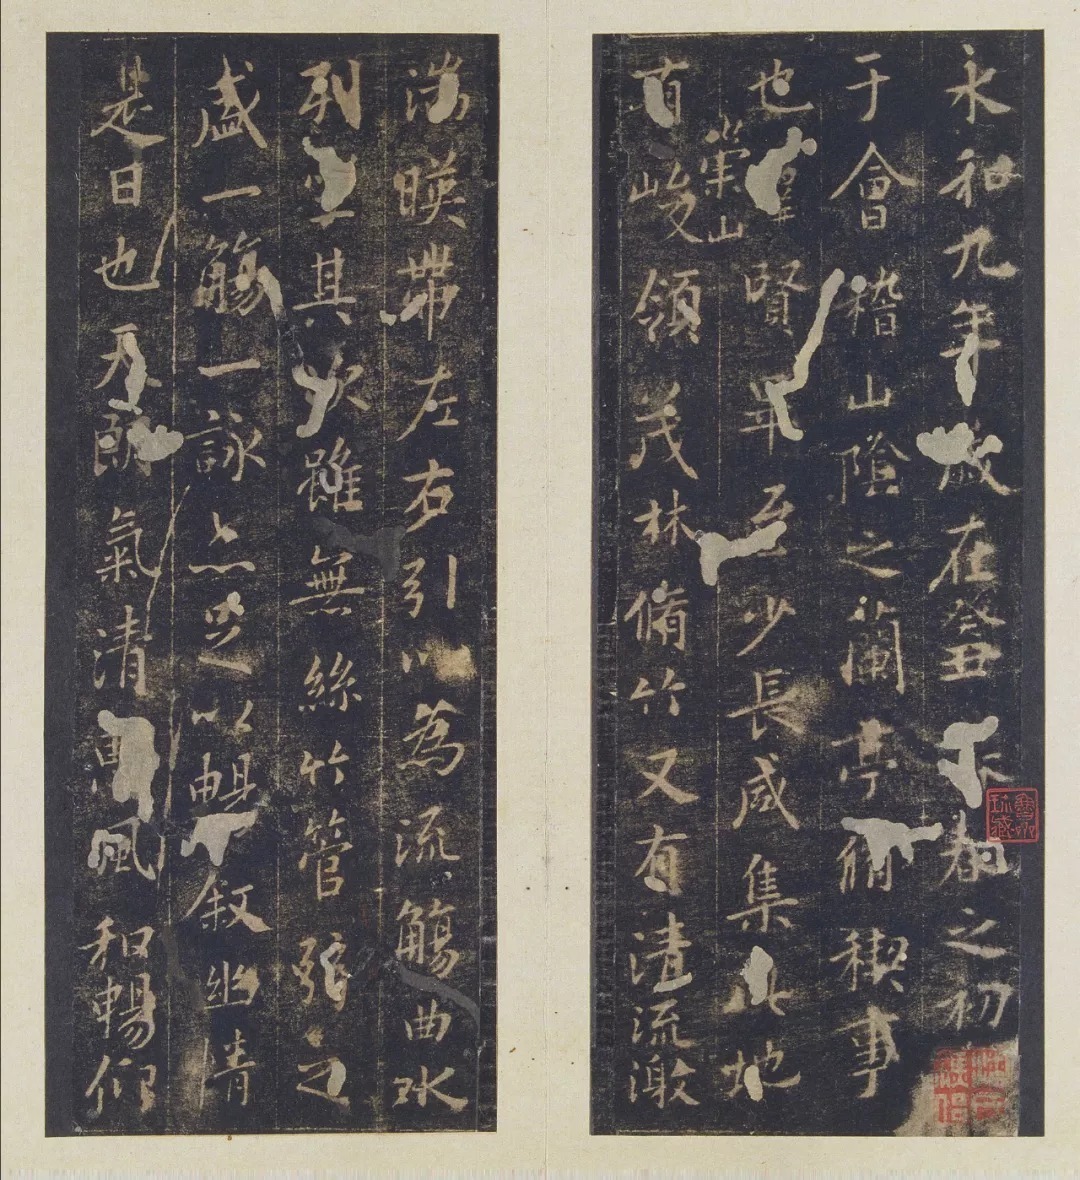 永和九年歲在癸丑暮春之初
于會稽山陰之蘭亭脩禊事
也羣賢畢至少長咸集此地
有崇山峻領茂林脩竹又有清流激
湍暎帶左右引以為流觴曲水
列坐其次雖無絲竹管弦之
盛一觴一詠亦足以暢敘幽情
是日也天朗氣清惠風和暢仰